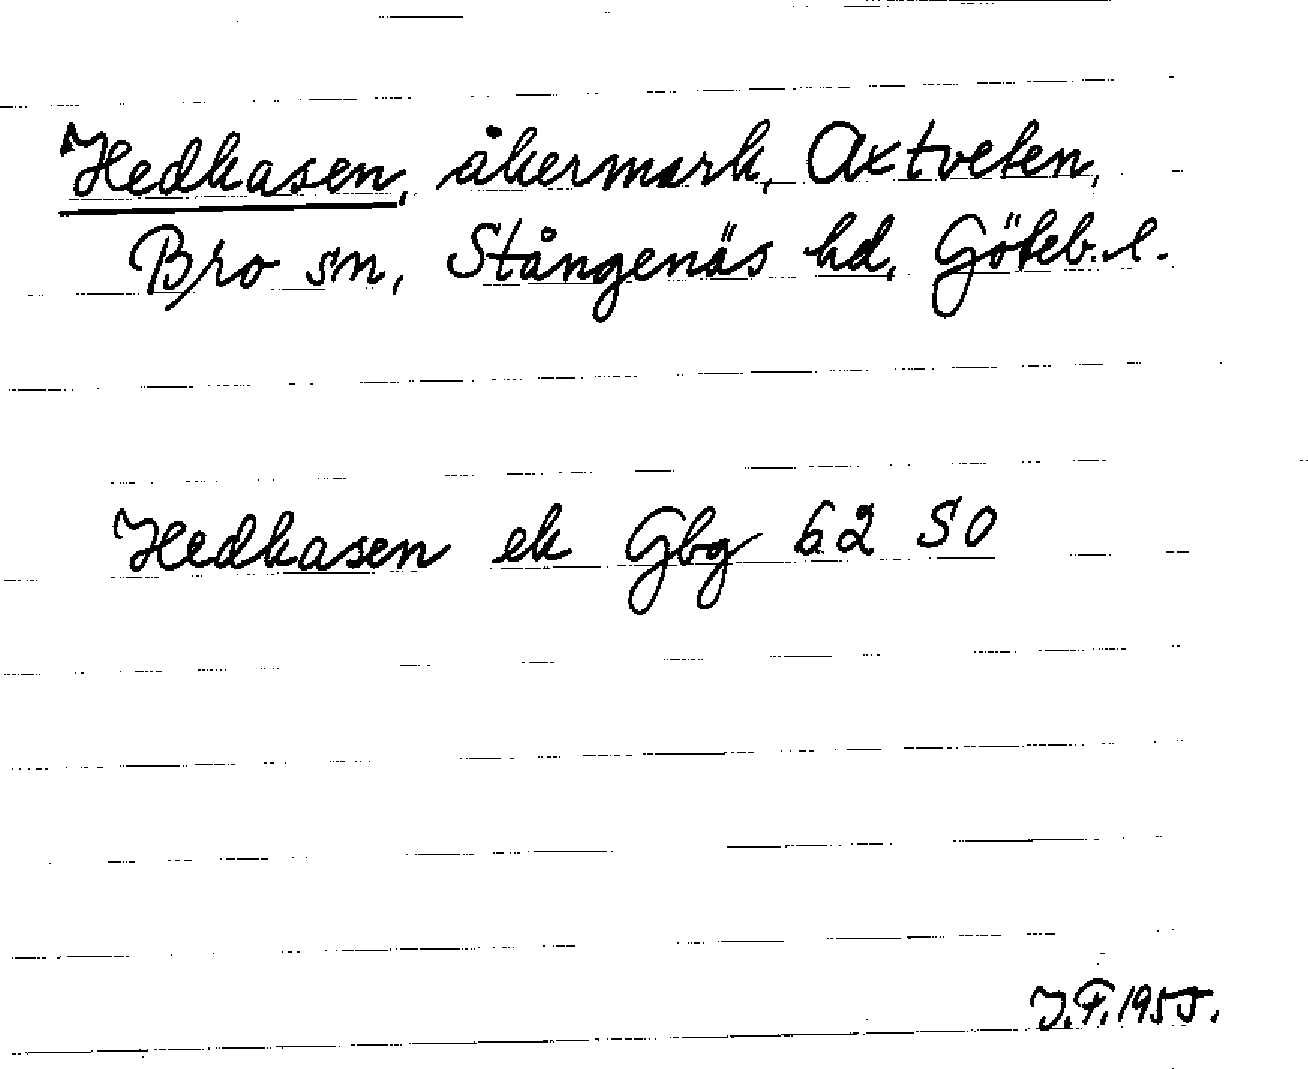 Hedkasen, åkermark, Axtveten,
Bro sn, Stångenäs hd, Göteb. l.
Hedkasen ek Gbg 62 SO
J.F. 1955.